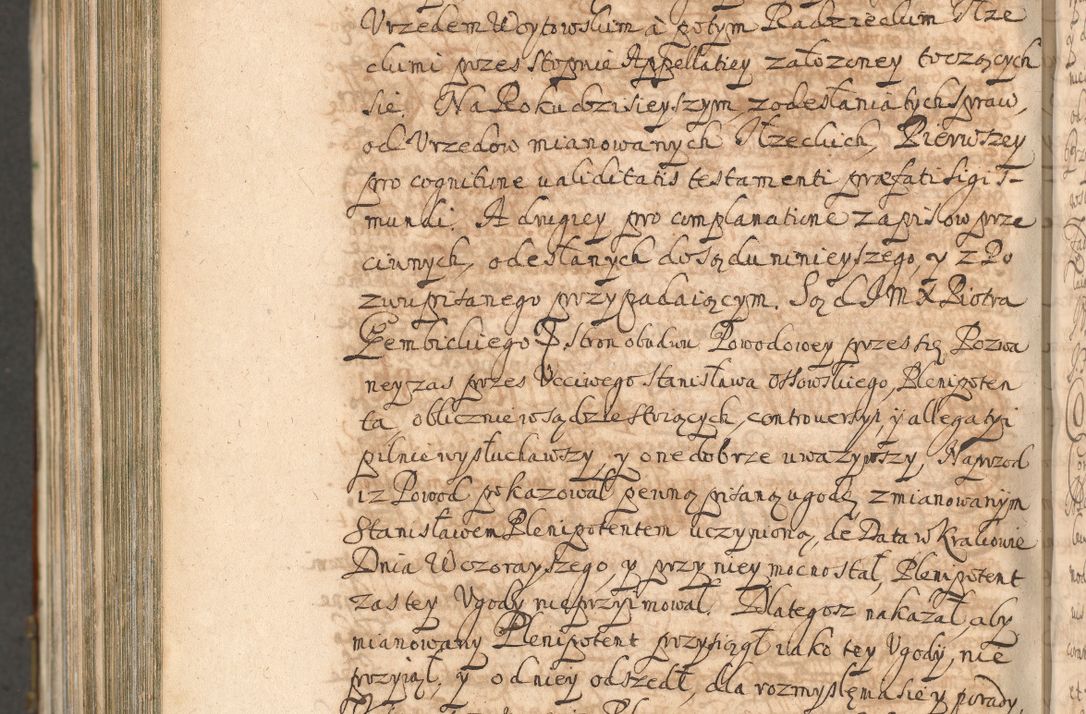 Vrzedem Woytowskim á potym Radzieckim Ilze
ckimi przes stopnie Appellatiey założoney toczących
się. Na Roku dzisieyszym, z odesłania tych spraw,
od Vrzędow mianowanych Ilzeckich, Pierwszey
pro cognitione validitatis testamenti præfati Sigis-
mundi. A drugiey pro complanatione zapisow prze
ciwnych, odesłanych do sądu ninieyszego, y z Po
zwu pisanego przypadaiącym. Sąd I M X Piotra
Gembickiego Stron obudwu Powodowey przes się Pozwa
ney zas przes Vcciwego Stanisława Ossowskiego, Plenipoten
ta, oblicznie v sądzie stoiących, controversyi y allegatyi
pilnie wysłuchawszy, y one dobrze uwazywszy, Naprzod
iz Powod pokazował pewną pisaną ugodę z mianowanym
Stanisławem Plenipotentem uczynioną, de Data w Krakowie
Dnia Wczorayszego, y przy niey mocno stał, Plenipotent
zas tey Vgody nie przyimował. Dlategosz nakazał, aby
mianowany Plenipotent przysiągł iako tey Vgody, nie
przyiął, y od niey odszedł, dla rozmyslęnia się y porady,